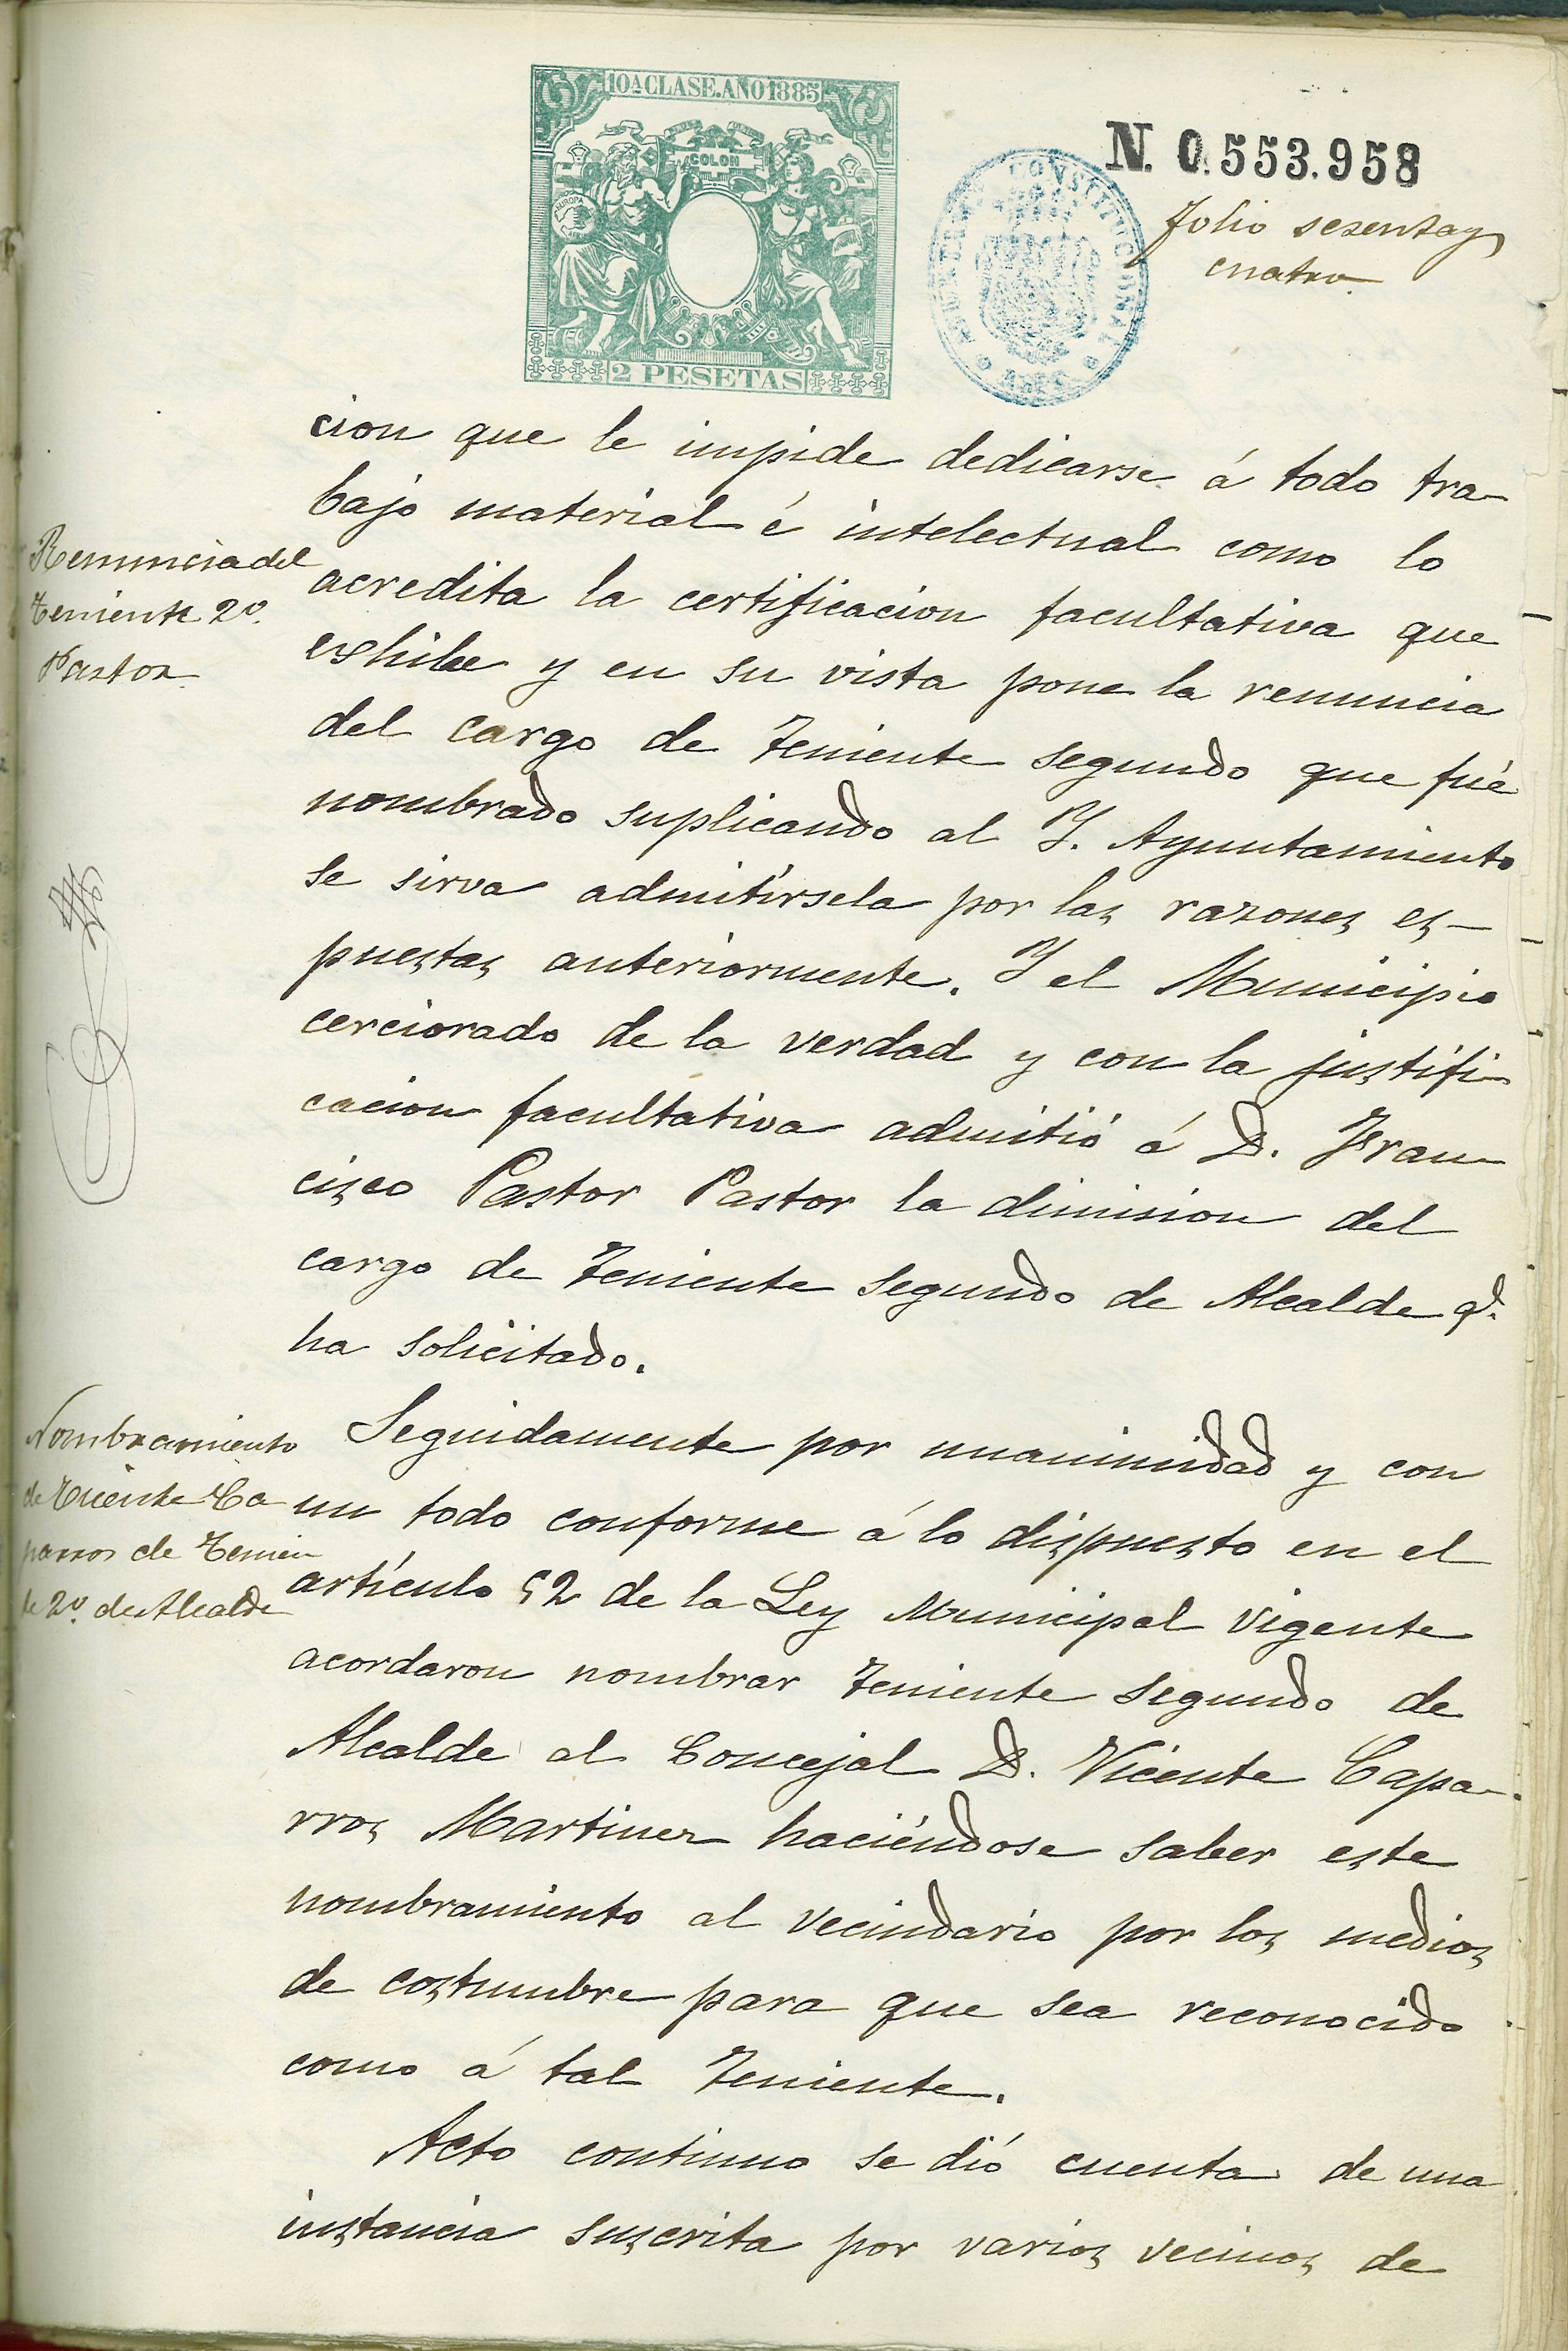 10ª CLASE. AÑO 1885
COLON
EUROPA
2 PESETAS
N. 0.553.958
CONSTITUCIONAL
Folio sesenta y
cuatro.
cion que le impide dedicarse á todo tra-
bajo material é intelectual como lo
acredita la certificacion facultativa que
exhibe y en su vista pone la renuncia
del cargo de Teniente segundo que fué
nombrado suplicando al Y. Ayuntamiento
se sirva admitirsela por las razones es-
puestas anteriormente. Y el Municipio
cerciorado de la verdad y con la justifi-
cacion facultativa admitió á D. Fran-
cisco Pastor Pastor la dimision del
cargo de Teniente segundo de Alcalde q.
ha solicitado.
Renuncia del
Teniente 2º.
Pastor.
Seguidamente por unanimidad y con
un todo conforme á lo dispuesto en el
artículo 52 de la Ley Municipal vigente
acordaron nombrar Teniente segundo de
Alcalde al Concejal D. Vicente Capa-
rros Martinez haciéndose saber este
nombramiento al vecindario por los medios
de costumbre para que sea reconocido
como á tal Teniente.
Nombramiento
de Vicente Ca
parros de Tenien
te 2º. de Alcalde
Acto continuo se dió cuenta de una
instancia suscrita por varios vecinos de